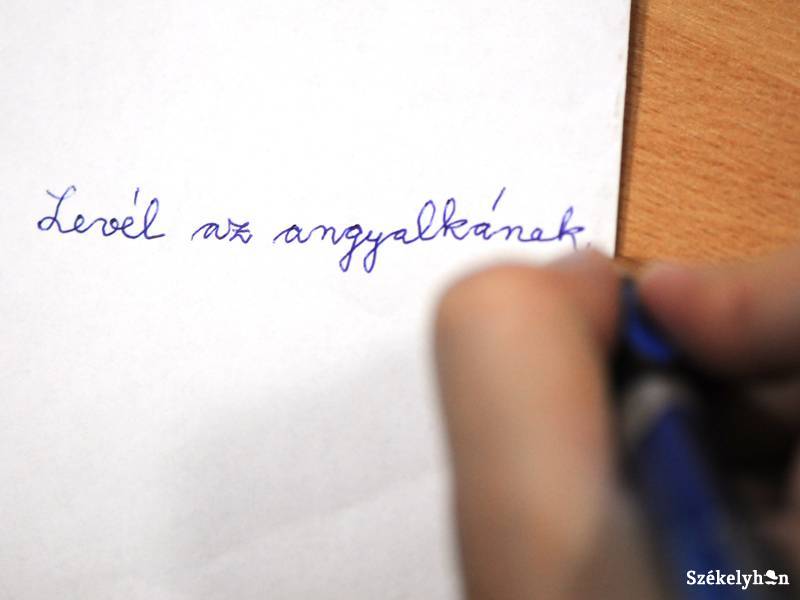 Levél az angyalkának.
Székelyhon